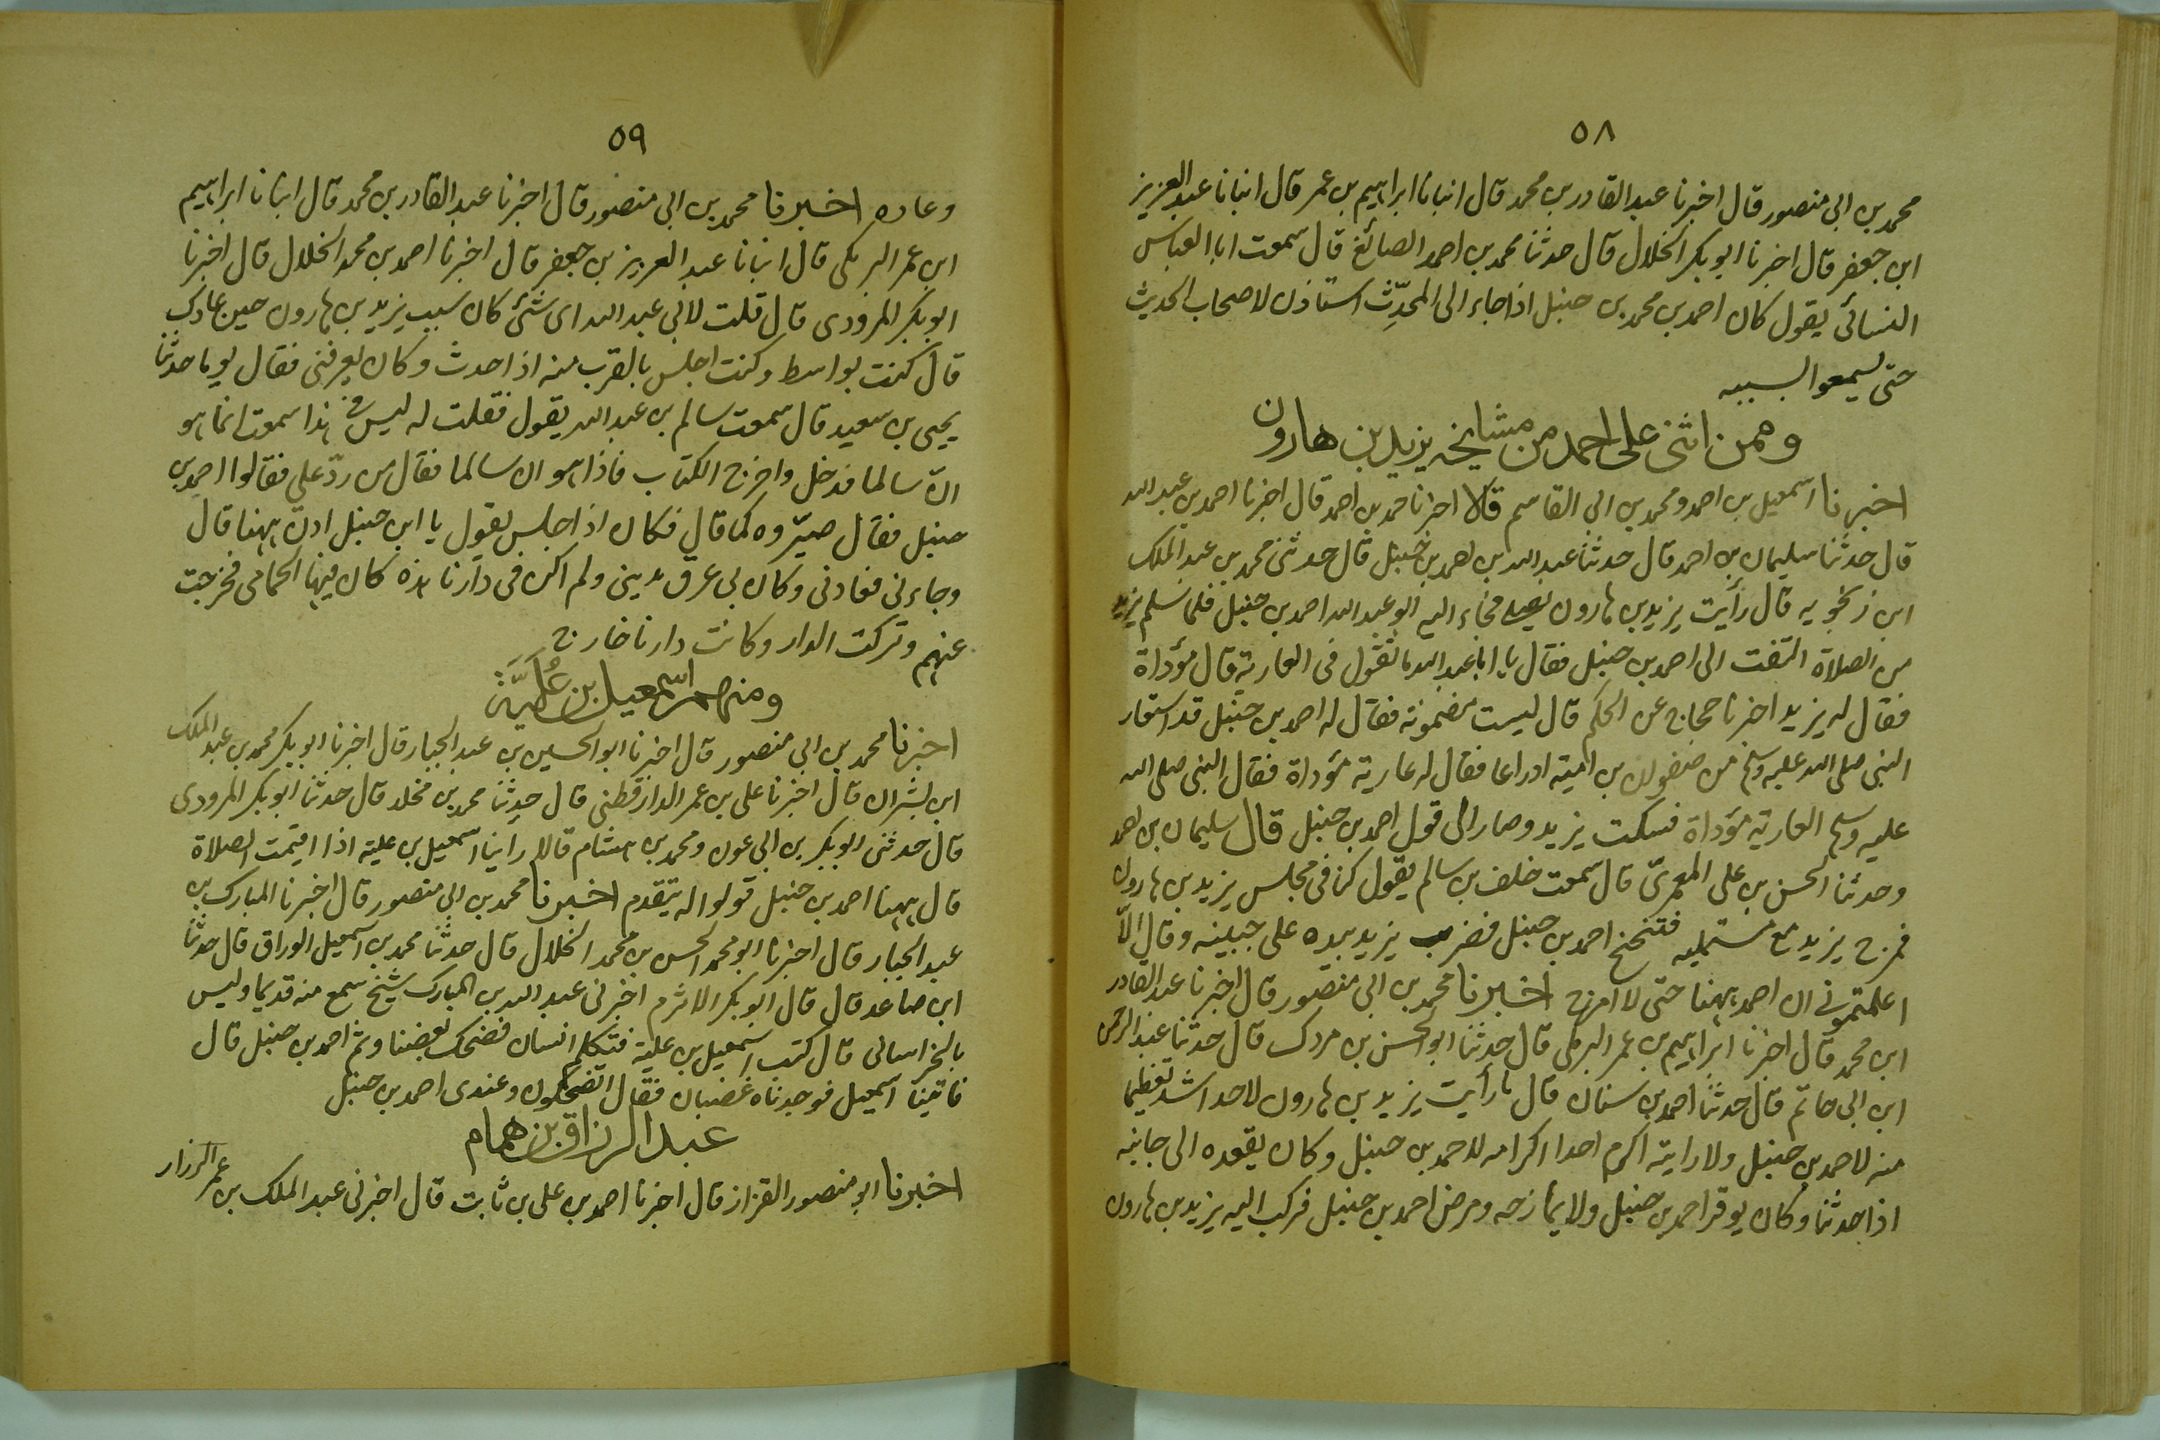 ٥٨
محمد بن ابى منصور قال اخبرنا عبد القادر بن محمد قال انبانا ابراهيم بن عمر قال انبانا عبد العزيز
ابن جعفر قال اخبرنا ابو بكر الخلال قال حدثنا محمد بن احمد الصائغ قال سمعت ابا العباس
النسائى يقول كان احمد بن محمد بن حنبل اذا جاء الى المحدّث استاذن لاصحاب الحديث
حتى يسمعوا بسببه
وممن اثنى على احمد من مشايخه يزيد بن هارون
اخبرنا اسمعيل بن احمد ومحمد بن ابى القاسم قالا اخبرنا حمد بن احمد قال اخبرنا احمد بن عبد الله
قال حدثنا سليمان بن احمد قال حدثنا عبد الله بن احمد بن حنبل قال حدثنى محمد بن عبد الملك
ابن زنجويه قال رأيت يزيد بن هارون يصلى فجاء اليه ابو عبد الله احمد بن حنبل فلما سلم يزيد
من الصلاة التفت الى احمد بن حنبل فقال يا ابا عبد الله ما تقول فى العارية قال مؤداة
فقال له يزيد اخبرنا حجاج عن الحكم قال ليست بمضمونة فقال له احمد بن حنبل قد استعار
النبى صلى الله عليه وسلم من صفوان بن امية ادراعا فقال له عارية مؤداة فقال النبى صلى الله
عليه وسلم العارية مؤداة فسكت يزيد وصار الى قول احمد بن حنبل قال سليمان بن احمد
وحدثنا الحسن بن على المعمرىّ قال سمعت خلف بن سالم يقول كنا فى مجلس يزيد بن هارون
فمزح يزيد مع مستمليه فتنحنح احمد بن حنبل فضرب يزيد بيده على جبينه وقال الّا
اعلمتمونى ان احمد ههنا حتى لا امزح اخبرنا محمد بن ابى منصور قال اخبرنا عبد القادر
ابن محمد قال اخبرنا ابراهيم بن عمر البرمكى قال حدثنا ابو الحسن بن مردك قال حدثنا عبد الرحمن
ابن ابى حاتم قال حدثنا احمد بن سنان قال ما رأيت يزيد بن هارون لاحد اشد تعظيما
منه لاحمد بن حنبل ولا رايته اكرم احدا اكرامه لاحمد بن حنبل وكان يقعده الى جانبه
اذا حدثنا وكان يوقر احمد بن حنبل ولا يمازحه ومرض احمد بن حنبل فركب اليه يزيد بن هارون
٥٩
وعاده اخبرنا محمد بن ابى منصور قال اخبرنا عبد القادر بن محمد قال انبانا ابراهيم
ابن عمر البرمكى قال انبانا عبد العزيز بن جعفر قال اخبرنا احمد بن محمد الخلال قال اخبرنا
ابو بكر المرودى قال قلت لابى عبد الله اى شئ كان سبب يزيد بن هارون حين عادك
قال كنت بواسط وكنت اجلس بالقرب منه اذا حدث وكان يعرفنى فقال يوما حدثنا
يحيى بن سعيد قال سمعت سالم بن عبد الله يقول فقلت له ليس فى هذا سمعت انما هو
انّ سالما فدخل واخرج الكتاب فاذا هو ان سالما فقال من ردّ علىّ فقالوا احمد بن
حنبل فقال صيّروه كما قال فكان اذا جلس يقول يا ابن حنبل ادنُ ههنا قال
وجاءنى فعادنى وكان بى عرق مدينى ولم اكن فى دارنا هذه كان فيها الحمامى فخرجت
عنهم وتركت الدار وكانت دارنا خارج
ومنهم اسمعيل بن عُلَيَّة
اخبرنا محمد بن ابى منصور قال اخبرنا ابو الحسين بن عبد الجبار قال اخبرنا ابو بكر محمد بن عبد الملك
ابن بشران قال اخبرنا على بن عمر الدارقطنى قال حدثنا محمد بن مخلد قال حدثنا ابو بكر المرودى
قال حدثنى ابو بكر بن ابى عون ومحمد بن هشام قالا راينا اسمعيل بن علية اذا اقيمت الصلاة
قال ههنا احمد بن حنبل قولوا له يتقدم اخبرنا محمد بن ابى منصور قال اخبرنا المبارك بن
عبد الجبار قال اخبرنا ابو محمد الحسن بن محمد الخلال قال حدثنا محمد بن اسمعيل الوراق قال حدثنا
ابن صاعد قال قال ابو بكر الاثرم اخبرنى عبد الله بن المبارك شيخ سمع منه قديما وليس
بالخراسانى قال كتب اسمعيل بن علية فتكلم انسان فضحك بعضنا وثم احمد بن حنبل قال
فاتينا اسمعيل فوجدناه غضبان فقال اتضحكون وعندى احمد بن حنبل
عبد الرزاق بن همام
اخبرنا ابو منصور القزاز قال اخبرنا احمد بن على بن ثابت قال اخبرنى عبد الملك بن عمر الرزاز